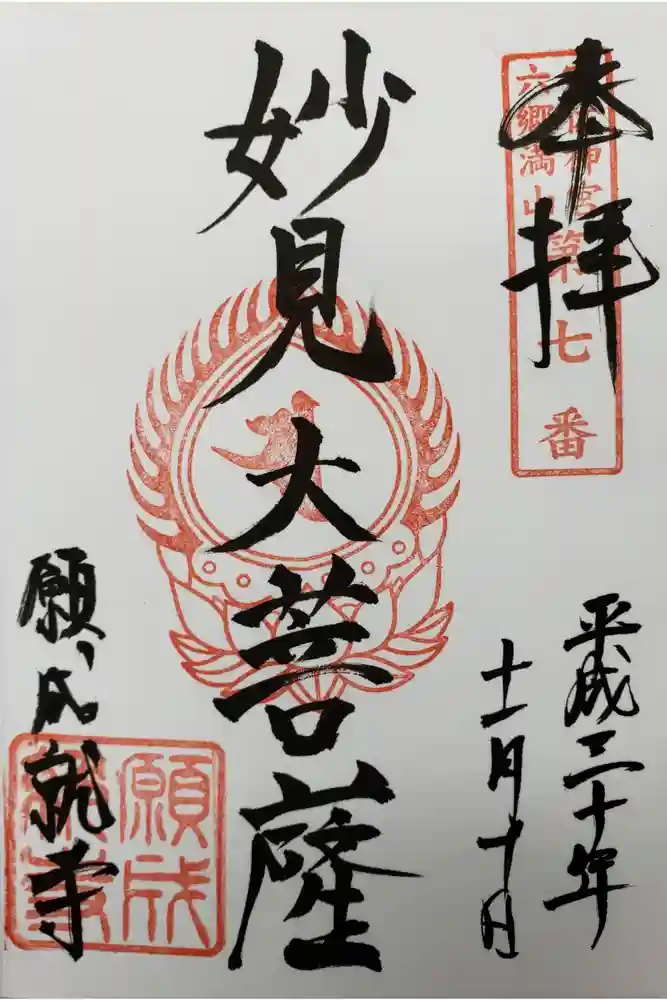 奉拝
神宮
六郷満山
第七番
平成三十年
十一月十日
妙見大菩薩
願成就寺
願成
就寺